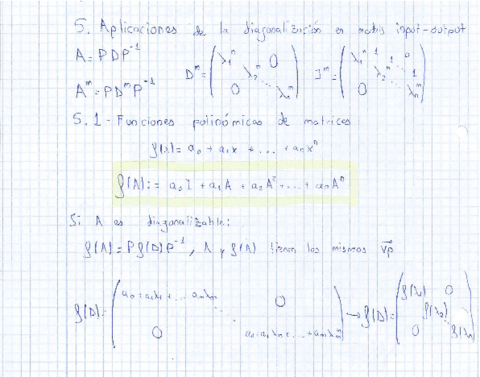 5. Aplicaciones de la diagonalización en modelos input-output
A = PDP⁻¹
Dⁿ = (λ₁ⁿ λ₂ⁿ ... λₙⁿ, 0, 0)
Jⁿ = (λ₁ⁿ 1 0 λ₂ⁿ 1 ... 1 0 λₙⁿ)
Aⁿ = PDⁿP⁻¹
5.1- Funciones polinómicas de matrices
f(x) = a₀ + a₁x + ... + aₙxⁿ
f(A) := a₀I + a₁A + a₂A² + ... + aₙAⁿ
Si A es diagonalizable:
f(A) = P f(D) P⁻¹, A y f(A) tienen los mismos vp
f(D) = (a₀ + a₁λ₁ + ... aₙλ₁ⁿ 0 ... 0 a₀ + a₁λₙ + ... + aₙλₙⁿ) → f(D) = (f(λ₁) 0 f(λ₂) ... 0 f(λₙ))